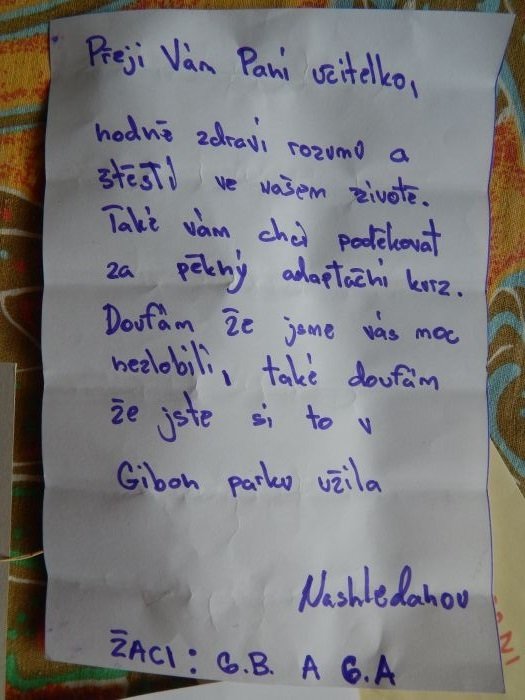 Přeji Vám Paní učitelko,
hodně zdraví rozumu a
štěstí ve vašem životě.
Také vám chci poděkovat
za pěkný adaptační kurz.
Doufám že jsme vás moc
nezlobili, také doufám
že jste si to v
Gibon parku užila
Nashledanou
ŽACI: 6.B. A 6.A